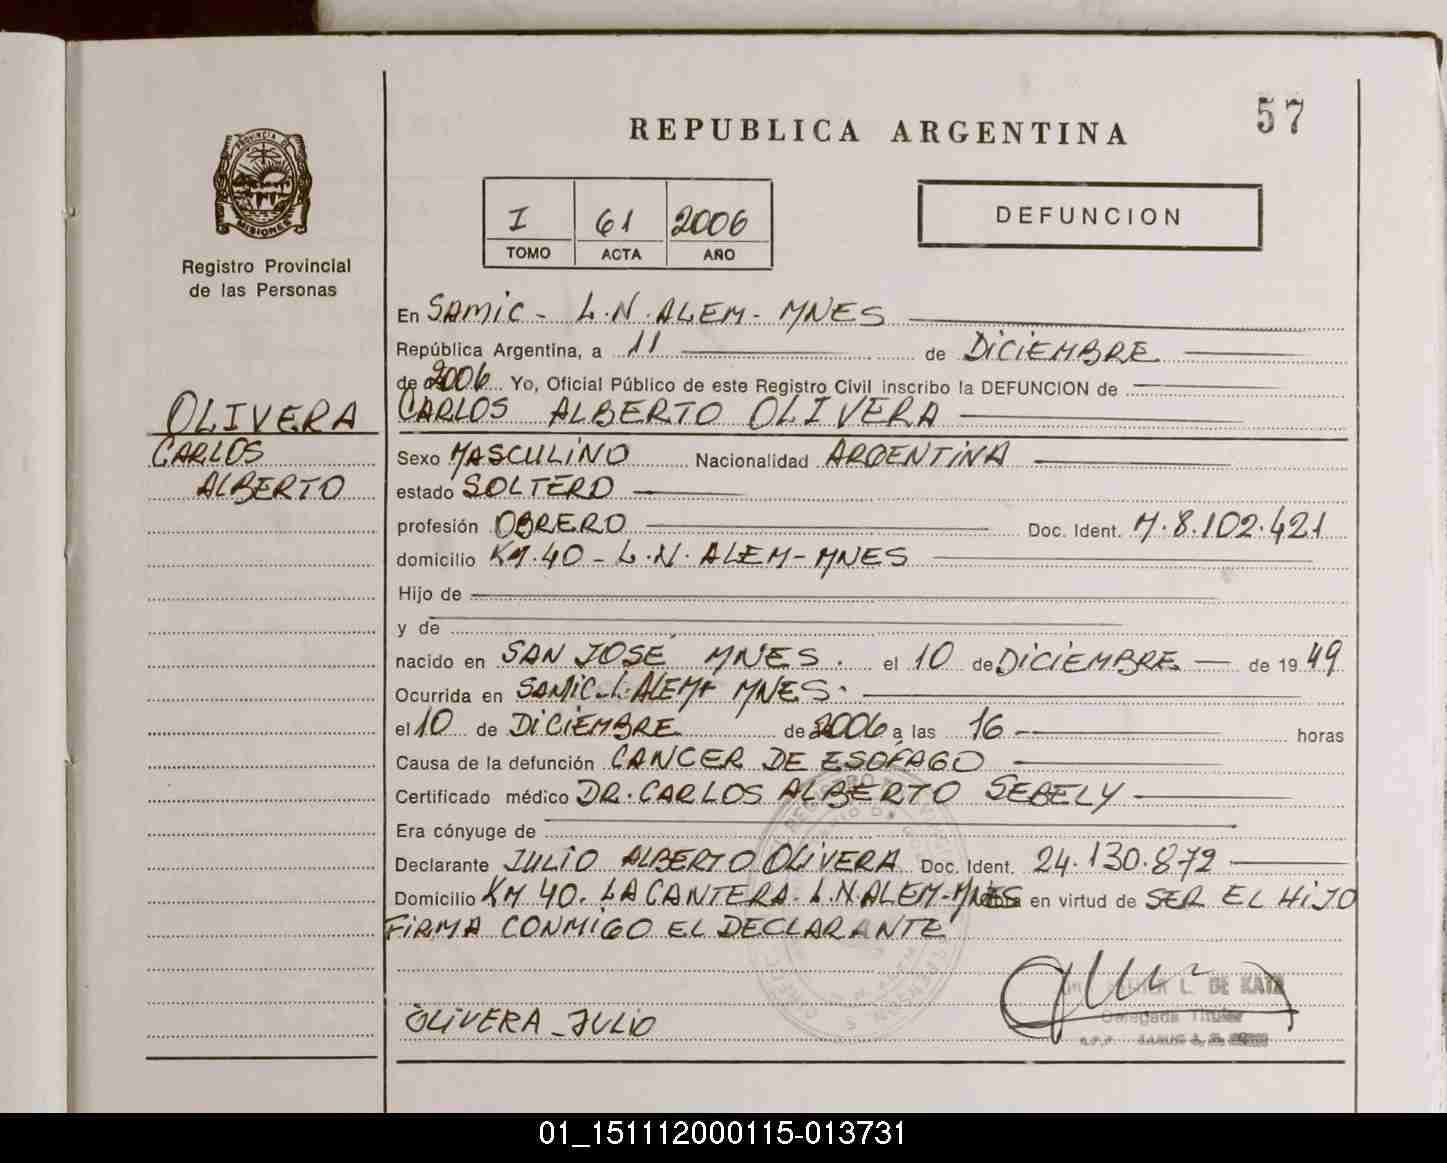 57
REPUBLICA ARGENTINA
PROVINCIA DE
MISIONES
Registro Provincial
de las Personas
I 61 2006
TOMO ACTA AÑO
DEFUNCION
En SAMIC - L.N. ALEM - MNES
República Argentina, a 11 de DICIEMBRE
de 2006 Yo, Oficial Público de este Registro Civil inscribo la DEFUNCION de
CARLOS ALBERTO OLIVERA
OLIVERA
CARLOS
ALBERTO
Sexo MASCULINO Nacionalidad ARGENTINA
estado SOLTERO
profesión OBRERO Doc. Ident. M.8.102.421
domicilio KM.40 - L.N. ALEM - MNES
Hijo de
y de
nacido en SAN JOSÉ MNES. el 10 de DICIEMBRE de 1949
Ocurrida en SAMIC-L.ALEM MNES.
el 10 de DICIEMBRE de 2006 a las 16 horas
Causa de la defunción CANCER DE ESOFAGO
Certificado médico DR. CARLOS ALBERTO SEBELY
Era cónyuge de
Declarante JULIO ALBERTO OLIVERA Doc. Ident. 24.130.872
Domicilio KM 40. LA CANTERA. L.N ALEM-MNES en virtud de SER EL HIJO
FIRMA CONMIGO EL DECLARANTE
OLIVERA JULIO
L. DE KATZ
Delegada Titular
01_151112000115-013731